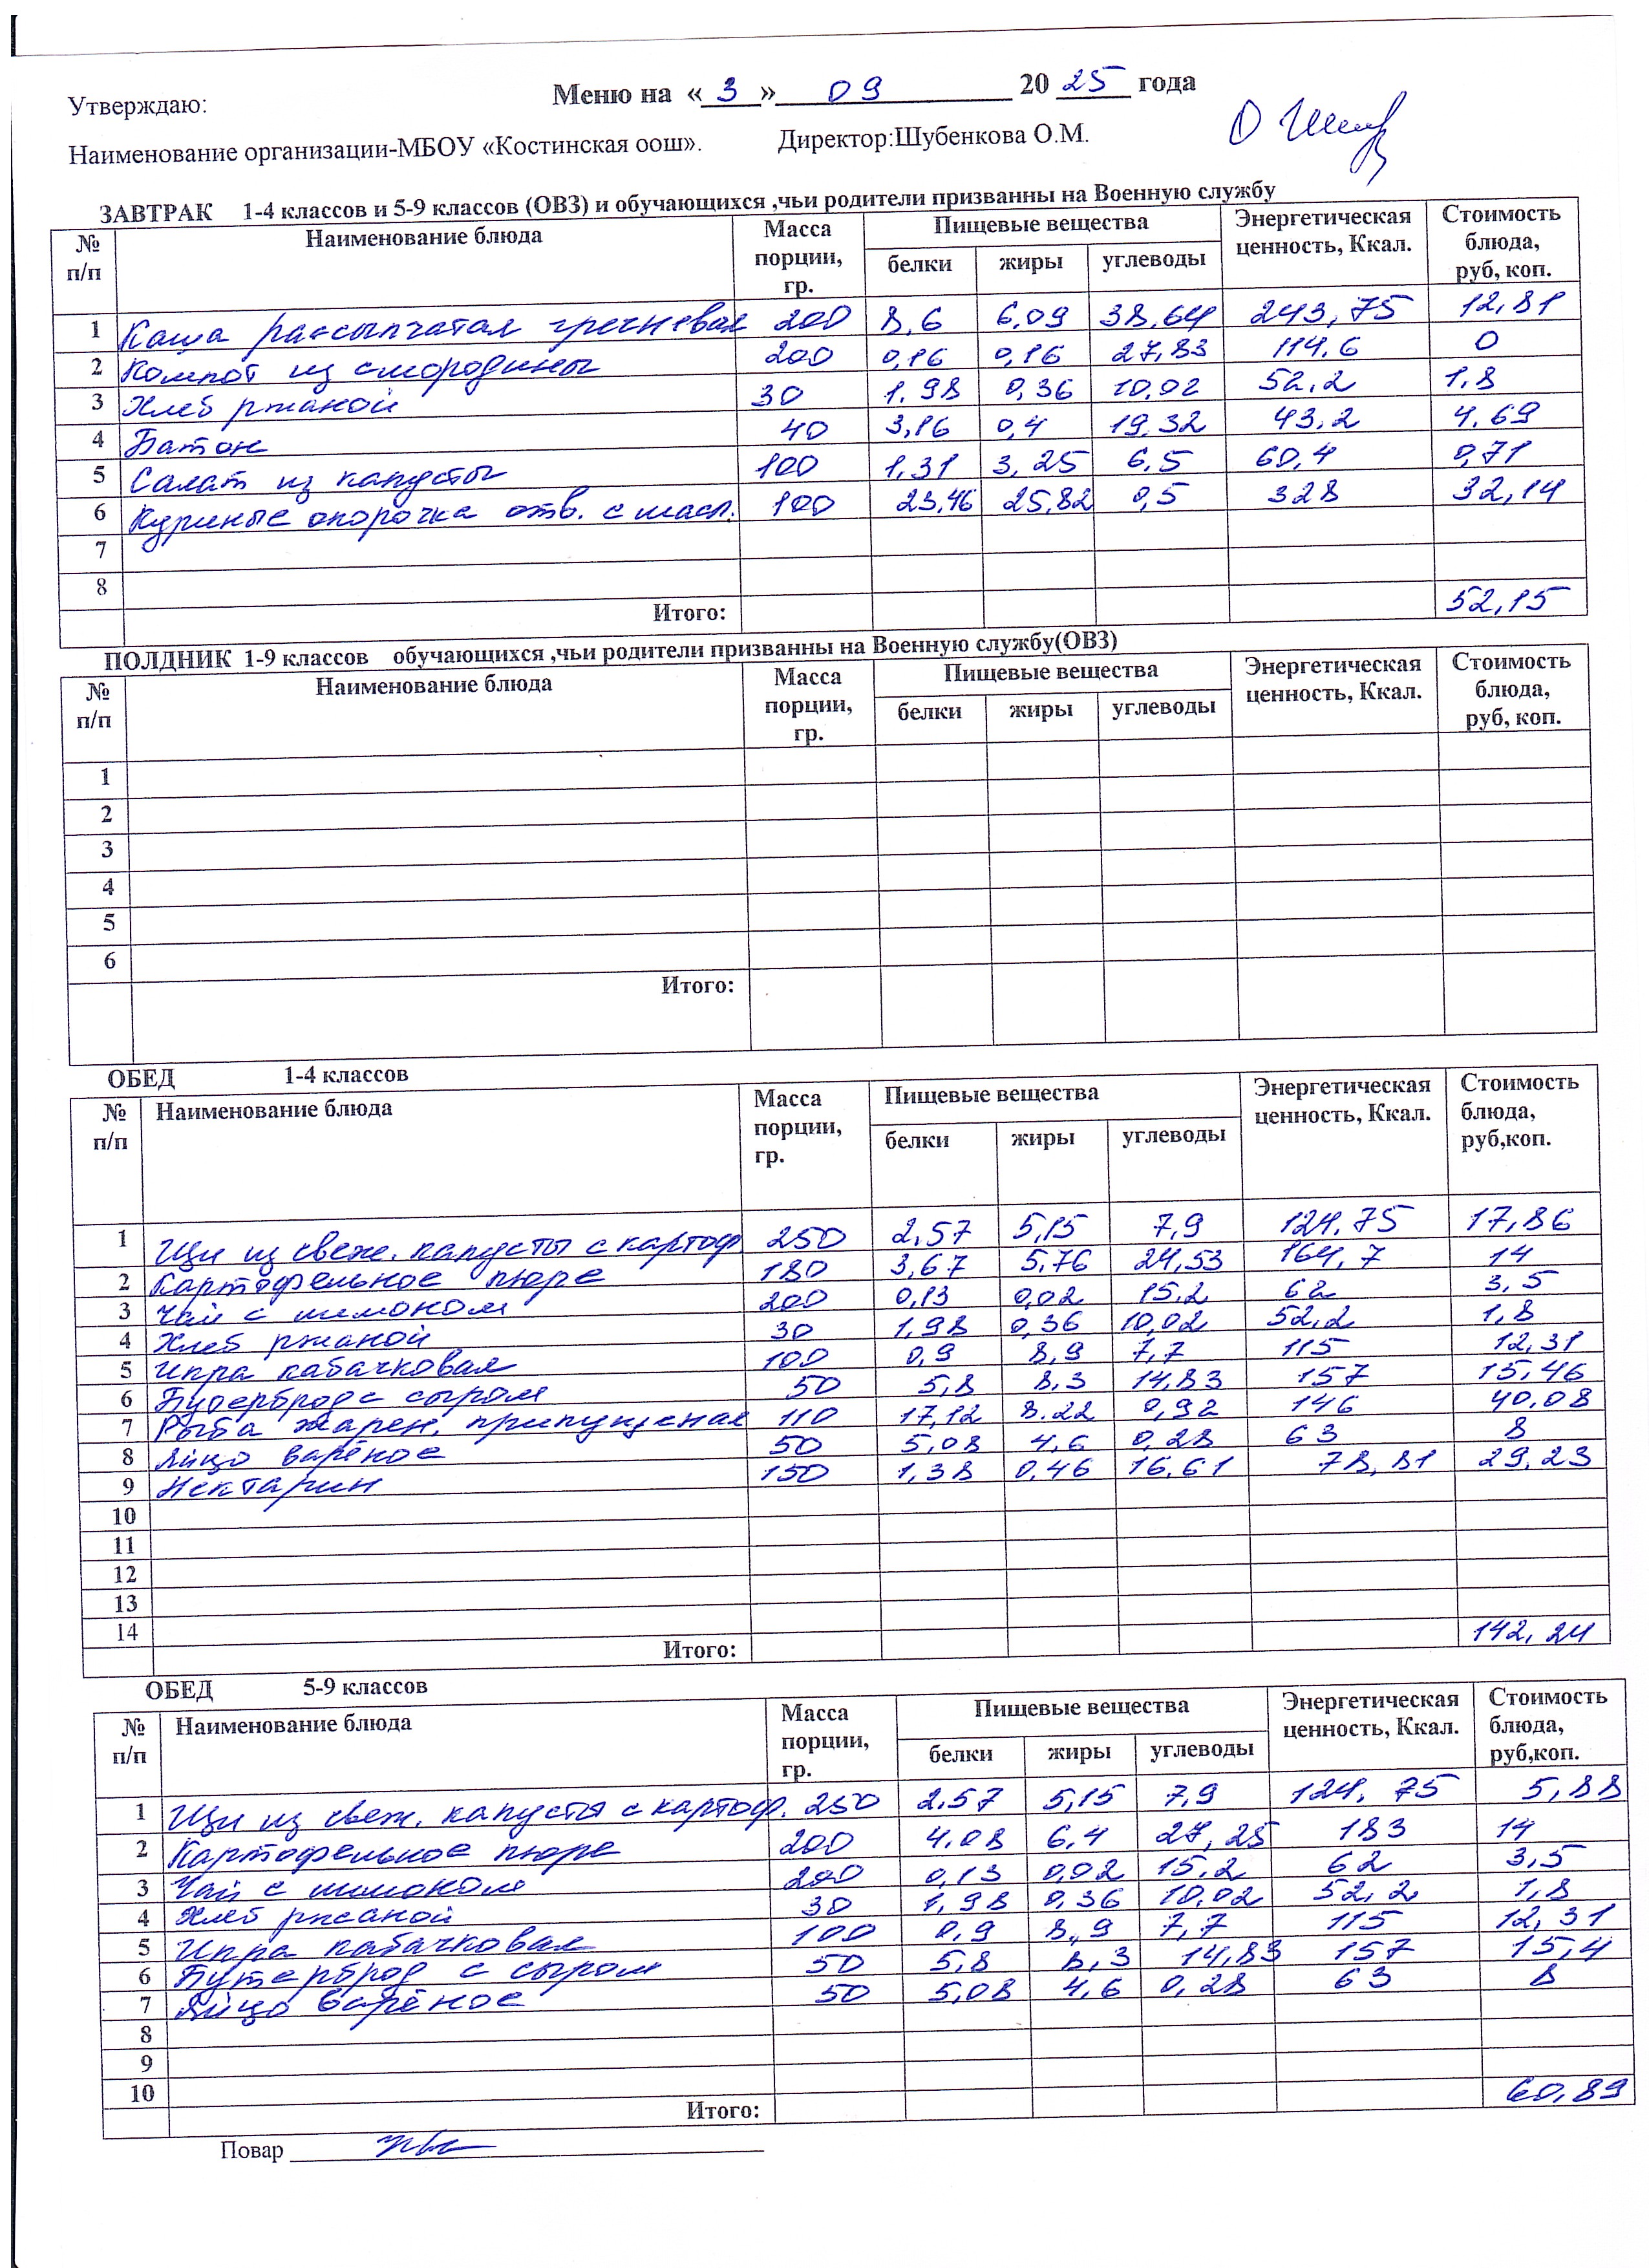 Меню на «3» 09 2025 года
Утверждаю:
Наименование организации-МБОУ «Костинская оош». Директор:Шубенкова О.М.
ЗАВТРАК 1-4 классов и 5-9 классов (ОВЗ) и обучающихся ,чьи родители призванны на Военную службу
№ п/п Наименование блюда Масса порции, гр. Пищевые вещества Энергетическая ценность, Ккал. Стоимость блюда, руб, коп.
белки жиры углеводы
1 Каша рассыпчатая гречневая 200 8,6 6,09 38,64 243,75 12,81
2 Компот из смородины 200 0,16 0,16 27,83 114,6 0
3 Хлеб ржаной 30 1,98 0,36 10,02 52,2 1,8
4 Батон 40 3,16 0,4 19,32 43,2 4,69
5 Салат из капусты 100 1,31 3,25 6,5 60,4 0,71
6 Куриные окорочка отв. с масл. 100 23,46 25,82 0,5 328 32,14
7
8
Итого: 52,15
ПОЛДНИК 1-9 классов обучающихся ,чьи родители призванны на Военную службу(ОВЗ)
№ п/п Наименование блюда Масса порции, гр. Пищевые вещества Энергетическая ценность, Ккал. Стоимость блюда, руб, коп.
белки жиры углеводы
1
2
3
4
5
6
Итого:
ОБЕД 1-4 классов
№ п/п Наименование блюда Масса порции, гр. Пищевые вещества Энергетическая ценность, Ккал. Стоимость блюда, руб,коп.
белки жиры углеводы
1 Щи из свеж. капусты с картоф 250 2,57 5,15 7,9 124,75 17,86
2 Картофельное пюре 180 3,67 5,76 24,53 164,7 14
3 Чай с лимоном 200 0,13 0,02 15,2 62 3,5
4 Хлеб ржаной 30 1,98 0,36 10,02 52,2 1,8
5 Икра кабачковая 100 0,9 8,9 7,7 115 12,31
6 Бутерброд с сыром 50 5,8 8,3 14,83 157 15,46
7 Рыба жарен. припущеная 110 17,12 8.22 0,92 146 40,08
8 Яйцо варёное 50 5,08 4,6 0,28 63 8
9 Нектарин 150 1,38 0,46 16,61 78,81 29,23
10
11
12
13
14
Итого: 142,24
ОБЕД 5-9 классов
№ п/п Наименование блюда Масса порции, гр. Пищевые вещества Энергетическая ценность, Ккал. Стоимость блюда, руб,коп.
белки жиры углеводы
1 Щи из свеж. капусты с картоф. 250 2,57 5,15 7,9 124,75 5,88
2 Картофельное пюре 200 4,08 6,4 27,25 183 14
3 Чай с лимоном 200 0,13 0,02 15,2 62 3,5
4 Хлеб ржаной 30 1,98 0,36 10,02 52,2 1,8
5 Икра кабачковая 100 0,9 8,9 7,7 115 12,31
6 Бутерброд с сыром 50 5,8 8,3 14,83 157 15,4
7 Яйцо варёное 50 5,08 4,6 0,28 63 8
8
9
10
Итого: 60,89
Повар